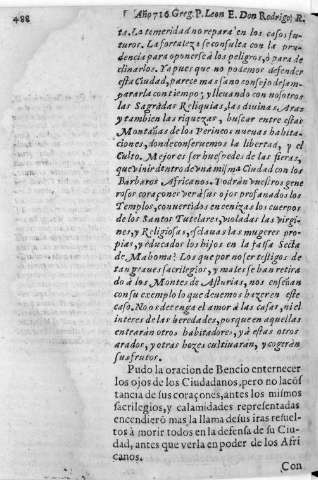 488
Año 716 Greg. P. Leon E. Don Rodrigo, R.
ta. La temeridad no repara en los casos fu-
turos. La fortaleza se consulta con la pru-
dencia para oponerse à los peligros, ò para de-
clinarlos. Ya pues que no podemos defender
esta Ciudad, parece mas sano consejo desam-
pararla con tiempo; y lleuando con nosotros
las Sagradas Reliquias, las diuinas Aras
y tambien las riquezas, buscar entre estas
Montañas de los Perineos nueuas habita-
ciones, donde conseruemos la libertad, y el
Culto. Mejor es ser huespedes de las fieras,
que viuir dentro de vna misma Ciudad con los
Barbaros Africanos. Podràn vuestros gene
rosos coraçones ver à sus ojos profanados los
Templos, conuertidos en cenizas los cuerpos
de los Santos Tutelares, violadas las virgi-
nes, y Religiosas, esclauas las mugeres pro-
pias, y educados los hijos en la falsa Secta
de Mahoma? Los que por no ser testigos de
tan graues sacrilegios, y males se han retira
do à los Montes de Asturias, nos enseñan
con su exemplo lo que deuemos hazer en este
caso. No os detenga el amor à las casas, ni el
interes de las heredades, porque en aquellas
entraràn otros habitadores, y à estas otros
arador, y otras hozes cultiuaràn, y cogeràn
sus frutos.
Pudo la oracion de Bencio enternecer
los ojos de los Ciudadanos, pero no la cõs
tancia de sus coraçones, antes los mismos
sacrilegios, y calamidades representadas
encendierõ mas la llama de sus iras resuel-
tos à morir todos en la defensa de su Ciu-
dad, antes que verla en poder de los Afri
canos.
Con